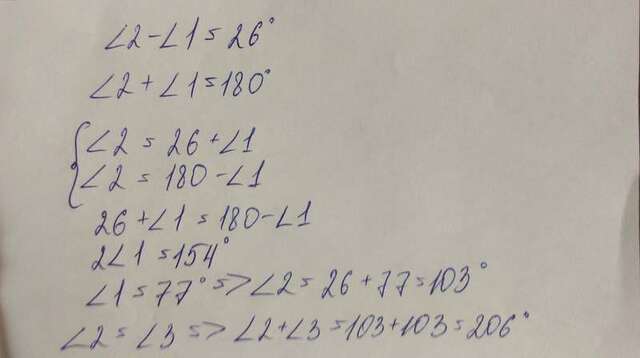 ∠2-∠1=26°
∠2+∠1=180°
{∠2=26+∠1
∠2=180-∠1
26+∠1=180-∠1
2∠1=154°
∠1=77°=>∠2=26+77=103°
∠2=∠3=>∠2+∠3=103+103=206°